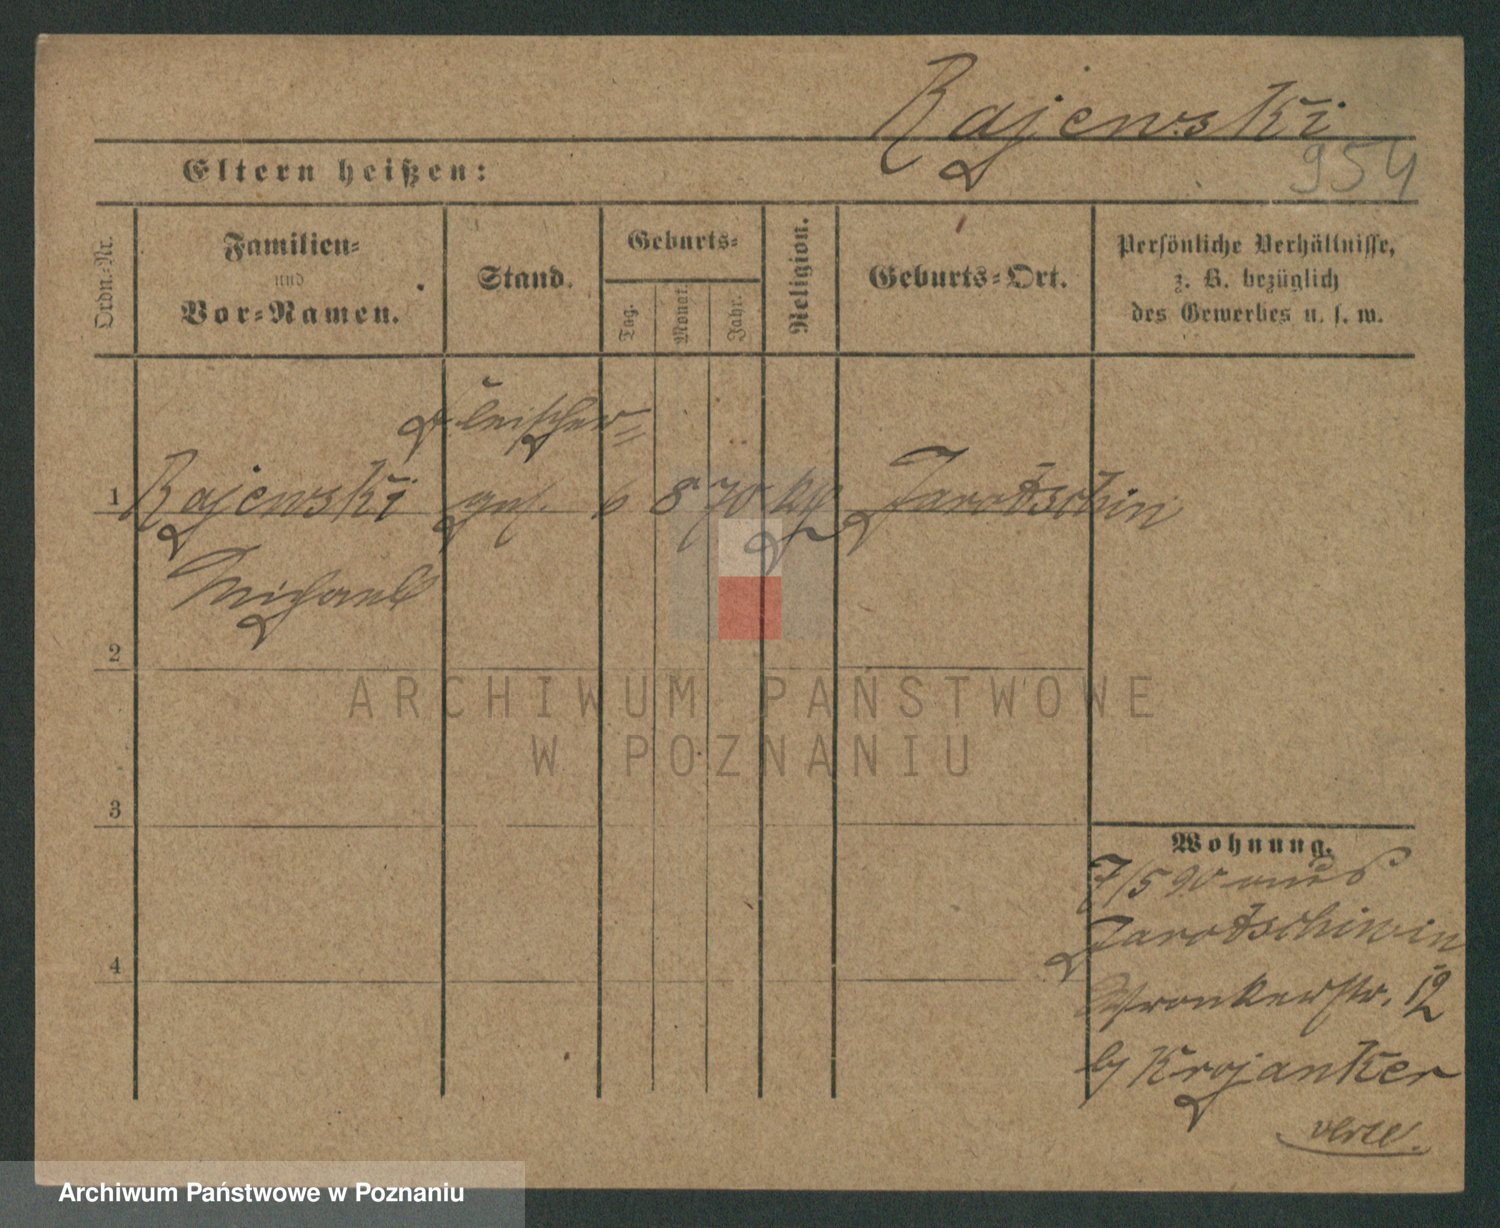 Rajewski
954
Eltern heißen:
Ordn.-Nr.
Familien-
und
Vor-Namen.
Stand.
Geburts-
Tag.
Monat.
Jahr.
Religion.
Geburts-Ort.
Persönliche Verhältnisse,
z. B. bezüglich
des Gewerbes u. s. w.
Fleischer-
1 Rajewski ges. 6 8 70 kath Jarotschin
Michael
2
3
4
Wohnung.
7/5 90 aus
Jarotschin
Wronkerstr. 19
b/ Krojanker
verte.
ARCHIWUM PAŃSTWOWE
W POZNANIU
Archiwum Państwowe w Poznaniu